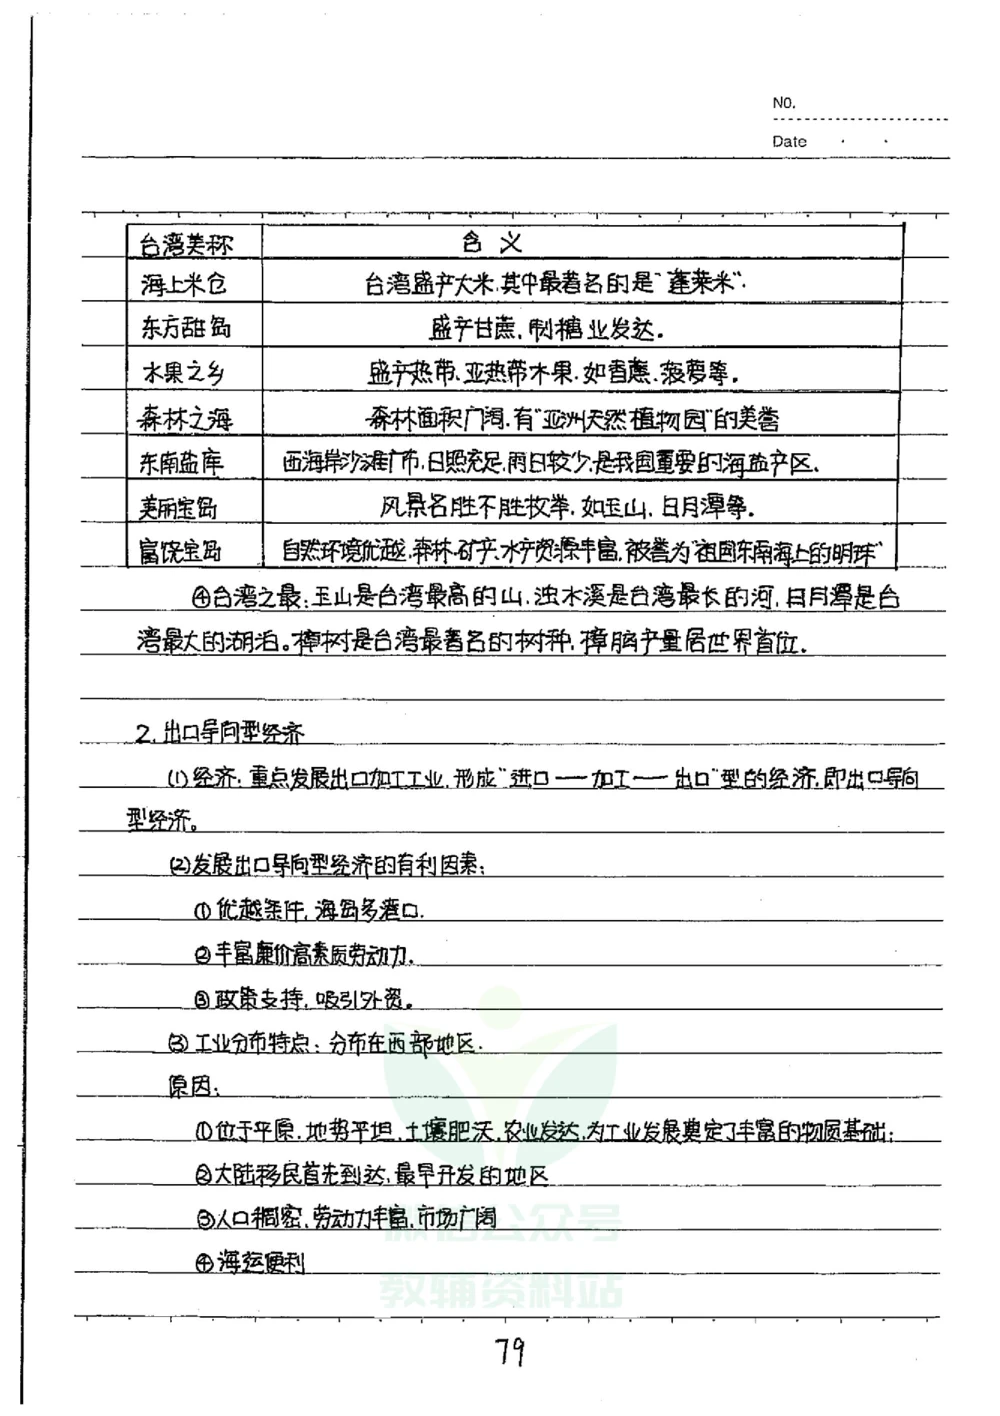 NO.
Date
台湾美称 含义
海上米仓 台湾盛产大米,其中最著名的是"蓬莱米".
东方甜岛 盛产甘蔗,制糖业发达.
水果之乡 盛产热带、亚热带水果,如香蕉、菠萝等.
森林之海 森林面积广阔,有"亚洲天然植物园"的美誉
东南盐库 西海岸沙滩广布,日照充足,雨日较少,是我国重要的海盐产区.
美丽宝岛 风景名胜不胜枚举,如玉山、日月潭等.
富饶宝岛 自然环境优越,森林、矿产、水产资源丰富,被誉为"祖国东南海上的明珠"
④台湾之最:玉山是台湾最高的山,浊水溪是台湾最长的河,日月潭是台
湾最大的湖泊。樟树是台湾最著名的树种,樟脑产量居世界首位.
2.出口导向型经济
(1)经济:重点发展出口加工工业,形成"进口——加工——出口"型的经济,即出口导向
型经济。
(2)发展出口导向型经济的有利因素:
①优越条件,海岛多港口.
②丰富廉价高素质劳动力.
③政策支持,吸引外资。
(3)工业分布特点:分布在西部地区.
原因:
①位于平原,地势平坦,土壤肥沃,农业发达,为工业发展奠定了丰富的物质基础;
②大陆移民首先到达,最早开发的地区
③人口稠密,劳动力丰富,市场广阔
④海运便利
微信公众号
教辅资料站
79